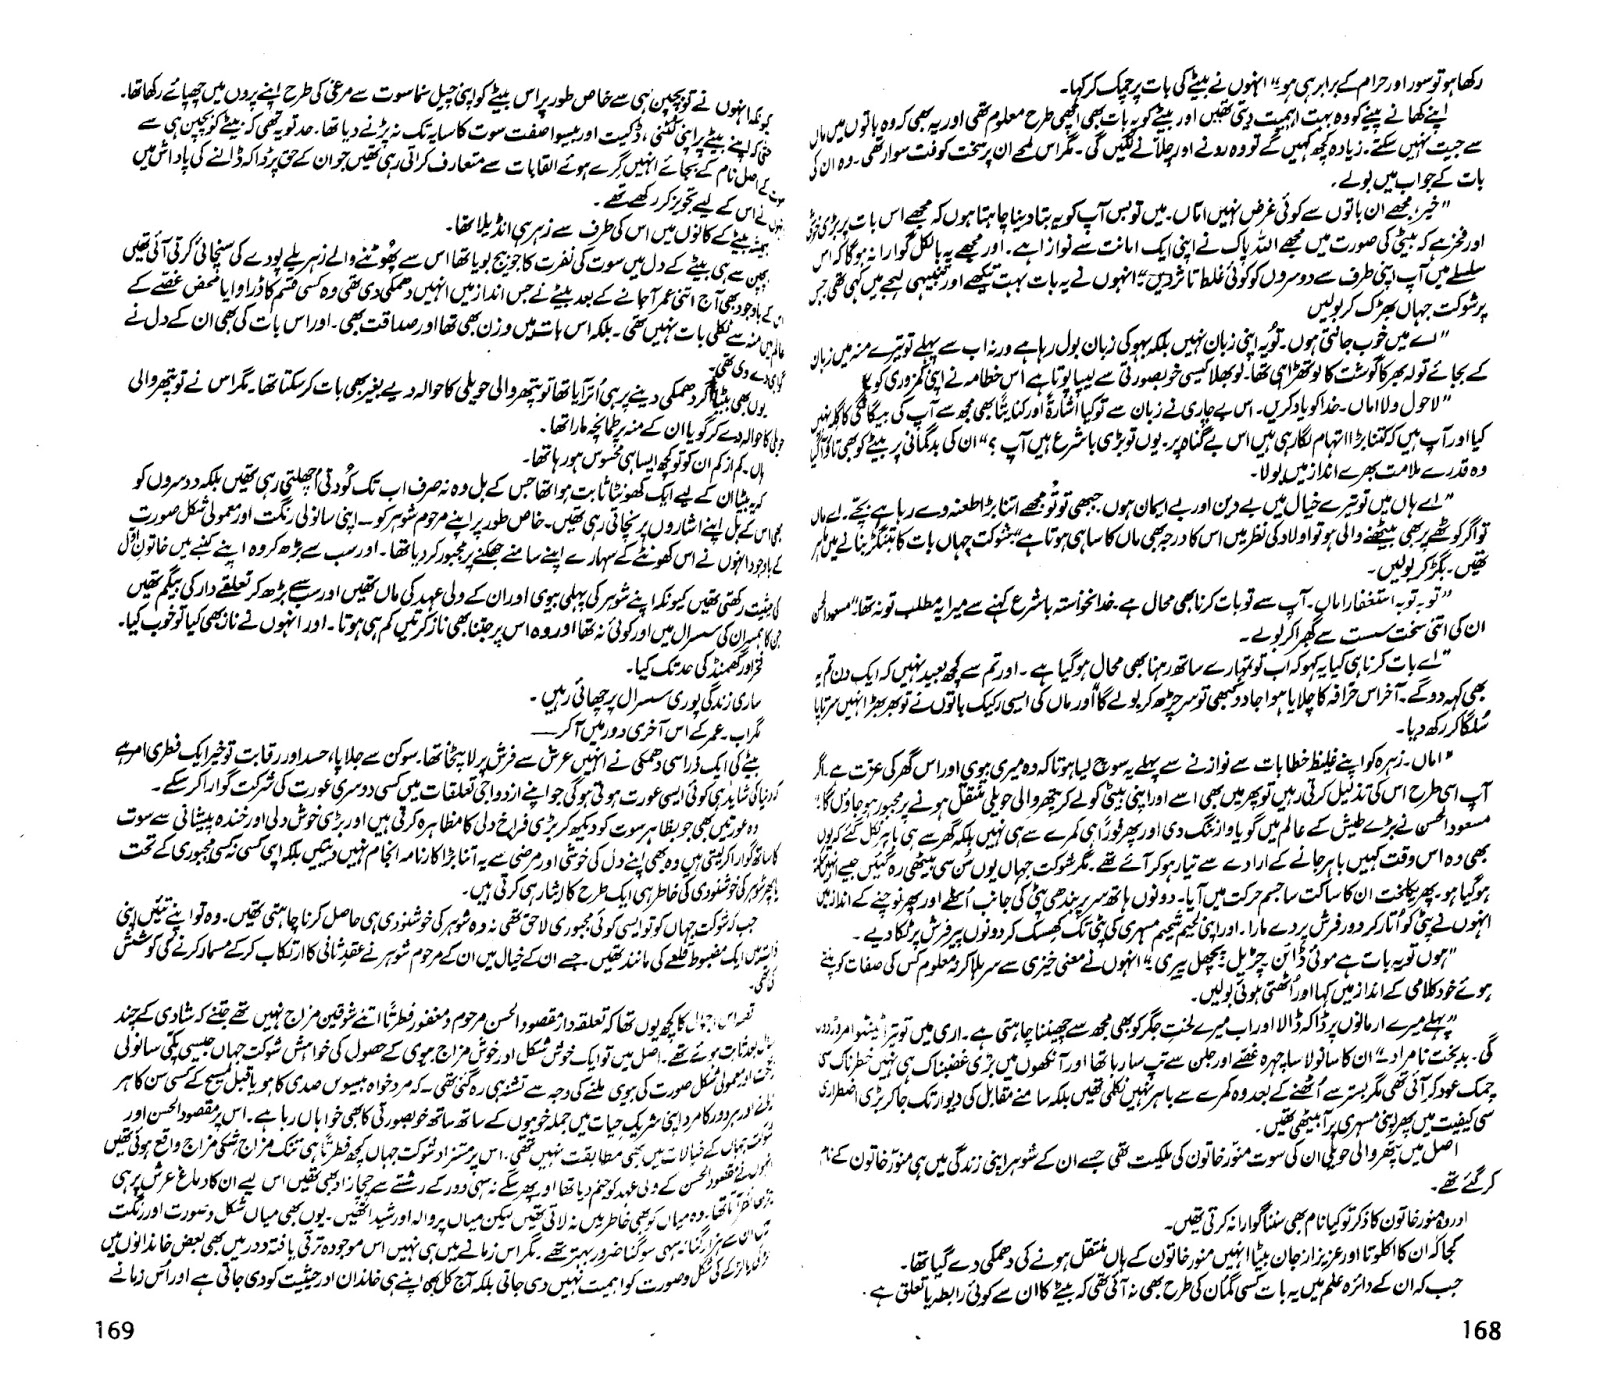 رکھا ہو تو سور اور حرام کے برابر ہی ہو۔“ انہوں نے بیٹے کی بات پر چمک کر کہا۔
اپنے کھانے پینے کو وہ بہت اہمیت دیتی تھیں اور بیٹے کو یہ بات بھی اچھی طرح معلوم تھی اور یہ بھی کہ وہ باتوں میں ماں
سے جیت نہیں سکتے۔ زیادہ کچھ کہیں گے تو وہ رونے اور چلانے لگیں گی۔ مگر اس لمحے ان پر سخت کوفت سوار تھی۔ وہ ان کی
بات کے جواب میں بولے۔
”خیر، مجھے ان باتوں سے کوئی غرض نہیں اماں۔ میں تو بس آپ کو یہ بتا دینا چاہتا ہوں کہ مجھے اس بات پر بڑی خوشی
اور فخر ہے کہ بیٹی کی صورت میں مجھے اللہ پاک نے اپنی ایک امانت سے نوازا ہے۔ اور مجھے یہ بالکل گوارا نہ ہوگا کہ اس
سلسلے میں آپ اپنی طرف سے دوسروں کو کوئی غلط تاثر دیں۔“ انہوں نے یہ بات بہت تیکھے اور تنبیہی لہجے میں کہی تھی جس
پر شوکت جہاں بھڑک کر بولیں
”اے میں خوب جانتی ہوں۔ تُو یہ اپنی زبان نہیں بلکہ بہو کی زبان بول رہا ہے ورنہ اب سے پہلے تو تیرے منہ میں زبان
کے بجائے تولہ بھر کا گوشت کا لوتھڑا ہی تھا۔ لو بھلا کیسی خوبصورتی سے لیپا پوتا ہے اُس خطامہ نے اپنی کمزوری کو“
”لاحول ولا اماں۔ خدا کو یاد کریں۔ اس بے چاری نے زبان سے تو کیا اشارۃً اور کنایتاً بھی مجھ سے آپ کی بیگانگی کا گلہ نہیں
کیا اور آپ ہیں کہ کتنا بڑا اتہام لگا رہی ہیں اس بے گناہ پر۔ یوں تو بڑی باشرع ہیں آپ؟“ ان کی بدگمانی پر بیٹے کو بھی تاؤ آگیا
وہ قدرے ملامت بھرے انداز میں بولا۔
”اے ہاں میں تو تیرے خیال میں بے دین اور بے ایمان ہوں۔ جبھی تو تُو مجھے اتنا بڑا طعنہ دے رہا ہے بچے۔ اے ماں
تو اگر کوٹھے پر بھی بیٹھنے والی ہو تو اولاد کی نظر میں اس کا درجہ بھی ماں کا سا ہی ہوتا ہے“ شوکت جہاں بات کا بتنگڑ بنانے میں ماہر
تھیں۔ بگڑ کر بولیں۔
”توبہ توبہ استغفار اماں۔ آپ سے تو بات کرنا بھی محال ہے۔ خدانخواستہ باشرع کہنے سے میرا یہ مطلب تو نہ تھا۔“ مسعود الحسن
ان کی اتنی سخت سست سے گھبرا کر بولے۔
”اے بات کرنا ہی کیا یہ کہو کہ اب تو تمہارے ساتھ رہنا بھی محال ہو گیا ہے۔ اور تم سے کچھ بعید نہیں کہ ایک دن تم یہ
بھی کہہ دو گے۔ آخر اس حرافہ کا چلایا ہوا جادو کبھی تو سر چڑھ کر بولے گا“ اور ماں کی ایسی رکیک باتوں نے تو پھر بھڑ انہیں سرتاپا
سُلگا کر رکھ دیا۔
”اماں۔ زہرہ کو اپنے غلیظ خطابات سے نوازنے سے پہلے یہ سوچ لیا ہوتا کہ وہ میری بیوی اور اس گھر کی عزت ہے۔ اگر
آپ اسی طرح اس کی تذلیل کرتی رہیں تو پھر میں بھی اسے اور اپنی بیٹی کو لے کر پتھر والی حویلی منتقل ہونے پر مجبور ہو جاؤں گا“
مسعود الحسن نے بڑے طیش کے عالم میں گویا وارننگ دی اور پھر فوراً ہی کمرے سے ہی نہیں بلکہ گھر سے ہی باہر نکل گئے کہ یوں
بھی وہ اس وقت کہیں باہر جانے کے ارادے سے تیار ہو کر آئے تھے۔ مگر شوکت جہاں یوں سُن سی بیٹھی رہ گئیں جیسے انہیں سکتہ
ہو گیا ہو۔ پھر یکلخت ان کا ساکت سا جسم حرکت میں آیا۔ دونوں ہاتھ سر پر بندھی پٹی کی جانب اُٹھے اور پھر نوچنے کے انداز میں
انہوں نے پٹی کو اُتار کر دور فرش پر دے مارا۔ اور اپنی لحیم شحیم مسہری کی پٹی تک کھسک کر دونوں پیر فرش پر لٹکا دیے۔
”ہوں تو یہ بات ہے موئی ڈائن۔ چڑیل۔ پچھل پیری“ انہوں نے معنی خیزی سے سر ہلا کر نہ معلوم کس کی صفات کو اپنے
ہوئے خود کلامی کے انداز میں کہا اور اُٹھتی ہوئی بولیں۔
”پہلے میرے ارمانوں پر ڈاکہ ڈالا اور اب میرے لختِ جگر کو بھی مجھ سے چھیننا چاہتی ہے۔ اری میں تو تیرا ٹینٹوا مروڑ دوں
گی۔ بدبخت نامراد۔“ ان کا سانولا سا چہرہ غصے اور جلن سے تپ سا رہا تھا اور آنکھوں میں بڑی غضبناک ہی نہیں خطرناک سی
چمک عود کر آئی تھی مگر بستر سے اُٹھنے کے بعد وہ کمرے سے باہر نہیں نکلی تھیں بلکہ سامنے مقابل کی دیوار تک جا کر بڑی اضطراری
سی کیفیت میں پھر اپنی مسہری پر آ بیٹھی تھیں۔
اصل میں پتھر والی حویلی ان کی سوت منور خاتون کی ملکیت تھی جسے ان کے شوہر اپنی زندگی میں ہی منور خاتون کے نام
کر گئے تھے۔
اور وہ منور خاتون کا ذکر تو کیا نام بھی سننا گوارا نہ کرتی تھیں۔
کجا کہ ان کا اکلوتا اور عزیز از جان بیٹا انہیں منور خاتون کے ہاں منتقل ہونے کی دھمکی دے گیا تھا۔
جب کہ ان کے دائرہ علم میں یہ بات کسی گمان کی طرح بھی نہ آئی تھی کہ بیٹے کا ان سے کوئی رابطہ یا تعلق ہے۔
168
کیونکہ انہوں نے تو بچپن ہی سے خاص طور پر اس بیٹے کو اپنی چیل نما سوت سے مرغی کی طرح اپنے پروں میں چھپائے رکھا تھا۔
حتیٰ کہ اپنے بیٹے پر اپنی کٹنی، ڈکیت اور بیسوا صفت سوت کا سایہ تک نہ پڑنے دیا تھا۔ حد تو یہ تھی کہ بیٹے کو بچپن ہی سے
سوت کے اصل نام کے بجائے انہیں گرے ہوئے القابات سے متعارف کراتی رہی تھیں جو ان کے حق پر ڈاکہ ڈالنے کی پاداش میں
انہوں نے اس کے لیے تجویز کر رکھے تھے۔
ہمیشہ بیٹے کے کانوں میں اس کی طرف سے زہر ہی انڈیلا تھا۔
بچپن سے ہی بیٹے کے دل میں سوت کی نفرت کا جو بیج بویا تھا اس سے پھوٹنے والے زہریلے پودے کی سنچائی کرتی آئی تھیں
اس کے باوجود بھی آج اتنی عمر آ جانے کے بعد بیٹے نے جس انداز میں انہیں دھمکی دی تھی وہ کسی قسم کا ڈراوا یا محض غصے کے
عالم میں منہ سے نکلی بات نہیں تھی۔ بلکہ اس بات میں وزن بھی تھا اور صداقت بھی۔ اور اس بات کی بھی ان کے دل نے
گواہی دے دی تھی۔
یوں بھی بیٹا اگر دھمکی دینے پر ہی اُتر آیا تھا تو پتھر والی حویلی کا حوالہ دیے بغیر بھی بات کر سکتا تھا۔ مگر اس نے تو پتھر والی
حویلی کا حوالہ دے کر گویا ان کے منہ پر طمانچہ مارا تھا۔
ہاں۔ کم از کم ان کو تو کچھ ایسا ہی محسوس ہو رہا تھا۔
کہ بیٹا ان کے لیے ایک کھونٹا ثابت ہوا تھا جس کے بل وہ نہ صرف اب تک کُودتی اُچھلتی رہی تھیں بلکہ دوسروں کو
بھی اس کے بل اپنے اشاروں پر نچاتی رہی تھیں۔ خاص طور پر اپنے مرحوم شوہر کو۔ اپنی سانولی رنگت اور معمولی شکل صورت
کے باوجود انہوں نے اس کھونٹے کے سہارے اپنے سامنے جھکنے پر مجبور کر دیا تھا۔ اور سب سے بڑھ کر وہ اپنے کنبے میں خاتونِ اوّل
کی حیثیت رکھتی تھیں کیونکہ اپنے شوہر کی پہلی بیوی اور ان کے ولی عہد کی ماں تھیں اور سب سے بڑھ کر تعلقے دار کی بیگم تھیں
جن کا ہمسر ان کی سسرال میں اور کوئی نہ تھا اور وہ اس پر جتنا بھی ناز کرتیں کم ہی ہوتا۔ اور انہوں نے ناز بھی کیا تو خوب کیا۔
فخر اور گھمنڈ کی حد تک کیا۔
ساری زندگی پوری سسرال پر چھائی رہیں۔
مگر اب۔ عمر کے اس آخری دور میں آ کر ——
بیٹے کی ایک ذرا سی دھمکی نے انہیں عرش سے فرش پر لا پٹخا تھا۔ سوکن سے جلاپا، حسد اور رقابت تو خیر ایک فطری امر ہے
کہ دنیا کی شاید ہی کوئی ایسی عورت ہوتی ہوگی جو اپنے ازدواجی تعلقات میں کسی دوسری عورت کی شرکت گوارا کر سکے۔
وہ عورتیں بھی جو بظاہر سوت کو دیکھ کر بڑی فراخ دلی کا مظاہرہ کرتی ہیں اور بڑی خوش دلی اور خندہ پیشانی سے سوت
کا ساتھ گوارا کر لیتی ہیں وہ بھی اپنے دل کی خوشی اور مرضی سے یہ اتنا بڑا کارنامہ انجام نہیں دیتیں بلکہ اپنی کسی نہ کسی مجبوری کے تحت
یا پھر شوہر کی خوشنودی کی خاطر ہی ایک طرح کا ایثار ہی کرتی ہیں۔
جب کہ شوکت جہاں کو تو ایسی کوئی مجبوری لاحق تھی نہ وہ شوہر کی خوشنودی ہی حاصل کرنا چاہتی تھیں۔ وہ تو اپنے تئیں اپنی
ذات میں ایک مضبوط قلعے کی مانند تھیں۔ جسے ان کے خیال میں ان کے مرحوم شوہر نے عقدِ ثانی کا ارتکاب کر کے مسمار کرنے کی کوشش
کی تھی۔
قصہ اس اجمال کا کچھ یوں تھا کہ تعلقہ دار مقصود الحسن مرحوم و مغفور فطرتاً اتنے شوقین مزاج نہیں تھے جتنے کہ شادی کے چند
سال بعد ثابت ہوئے تھے۔ اصل میں تو ایک خوش شکل اور خوش مزاج بیوی کے حصول کی خواہش شوکت جہاں جیسی پکی سانولی
رنگت اور معمولی شکل صورت کی بیوی ملنے کی وجہ سے تشنہ ہی رہ گئی تھی۔ کہ مرد خواہ بیسویں صدی کا ہو یا قبل مسیح کے کسی سن کا ہر
زمانے اور ہر دور کا مرد اپنی شریکِ حیات میں جملہ خوبیوں کے ساتھ ساتھ خوبصورتی کا بھی خواہاں رہا ہے۔ اس پر مقصود الحسن اور
شوکت جہاں کے خیالات میں بھی مطابقت نہیں تھی۔ اس پر مستزاد شوکت جہاں کچھ فطرتاً ہی تنک مزاج شکی مزاج واقع ہوئی تھیں
انہوں نے مقصود الحسن کے ولی عہد کو جنم دیا تھا اور پھر سگے نہ سہی دور کے رشتے سے چچا زاد بھی تھیں اس لیے ان کا دماغ عرش پر ہی
وہ میاں کو بھی خاطر میں نہ لاتی تھیں لیکن میاں پر والہ اور شیدا تھیں۔ یوں بھی میاں شکل و صورت اور رنگت
ہزار گنا نہ سہی سو گنا ضرور بہتر تھے۔ مگر اس زمانے میں ہی نہیں اس موجودہ ترقی یافتہ دور میں بھی بعض خاندانوں میں
لڑکی یا لڑکے کی شکل و صورت کو اہمیت نہیں دی جاتی بلکہ آج کل بھی اپنے ہی خاندان اور حیثیت کو دی جاتی ہے اور اُس زمانے
169